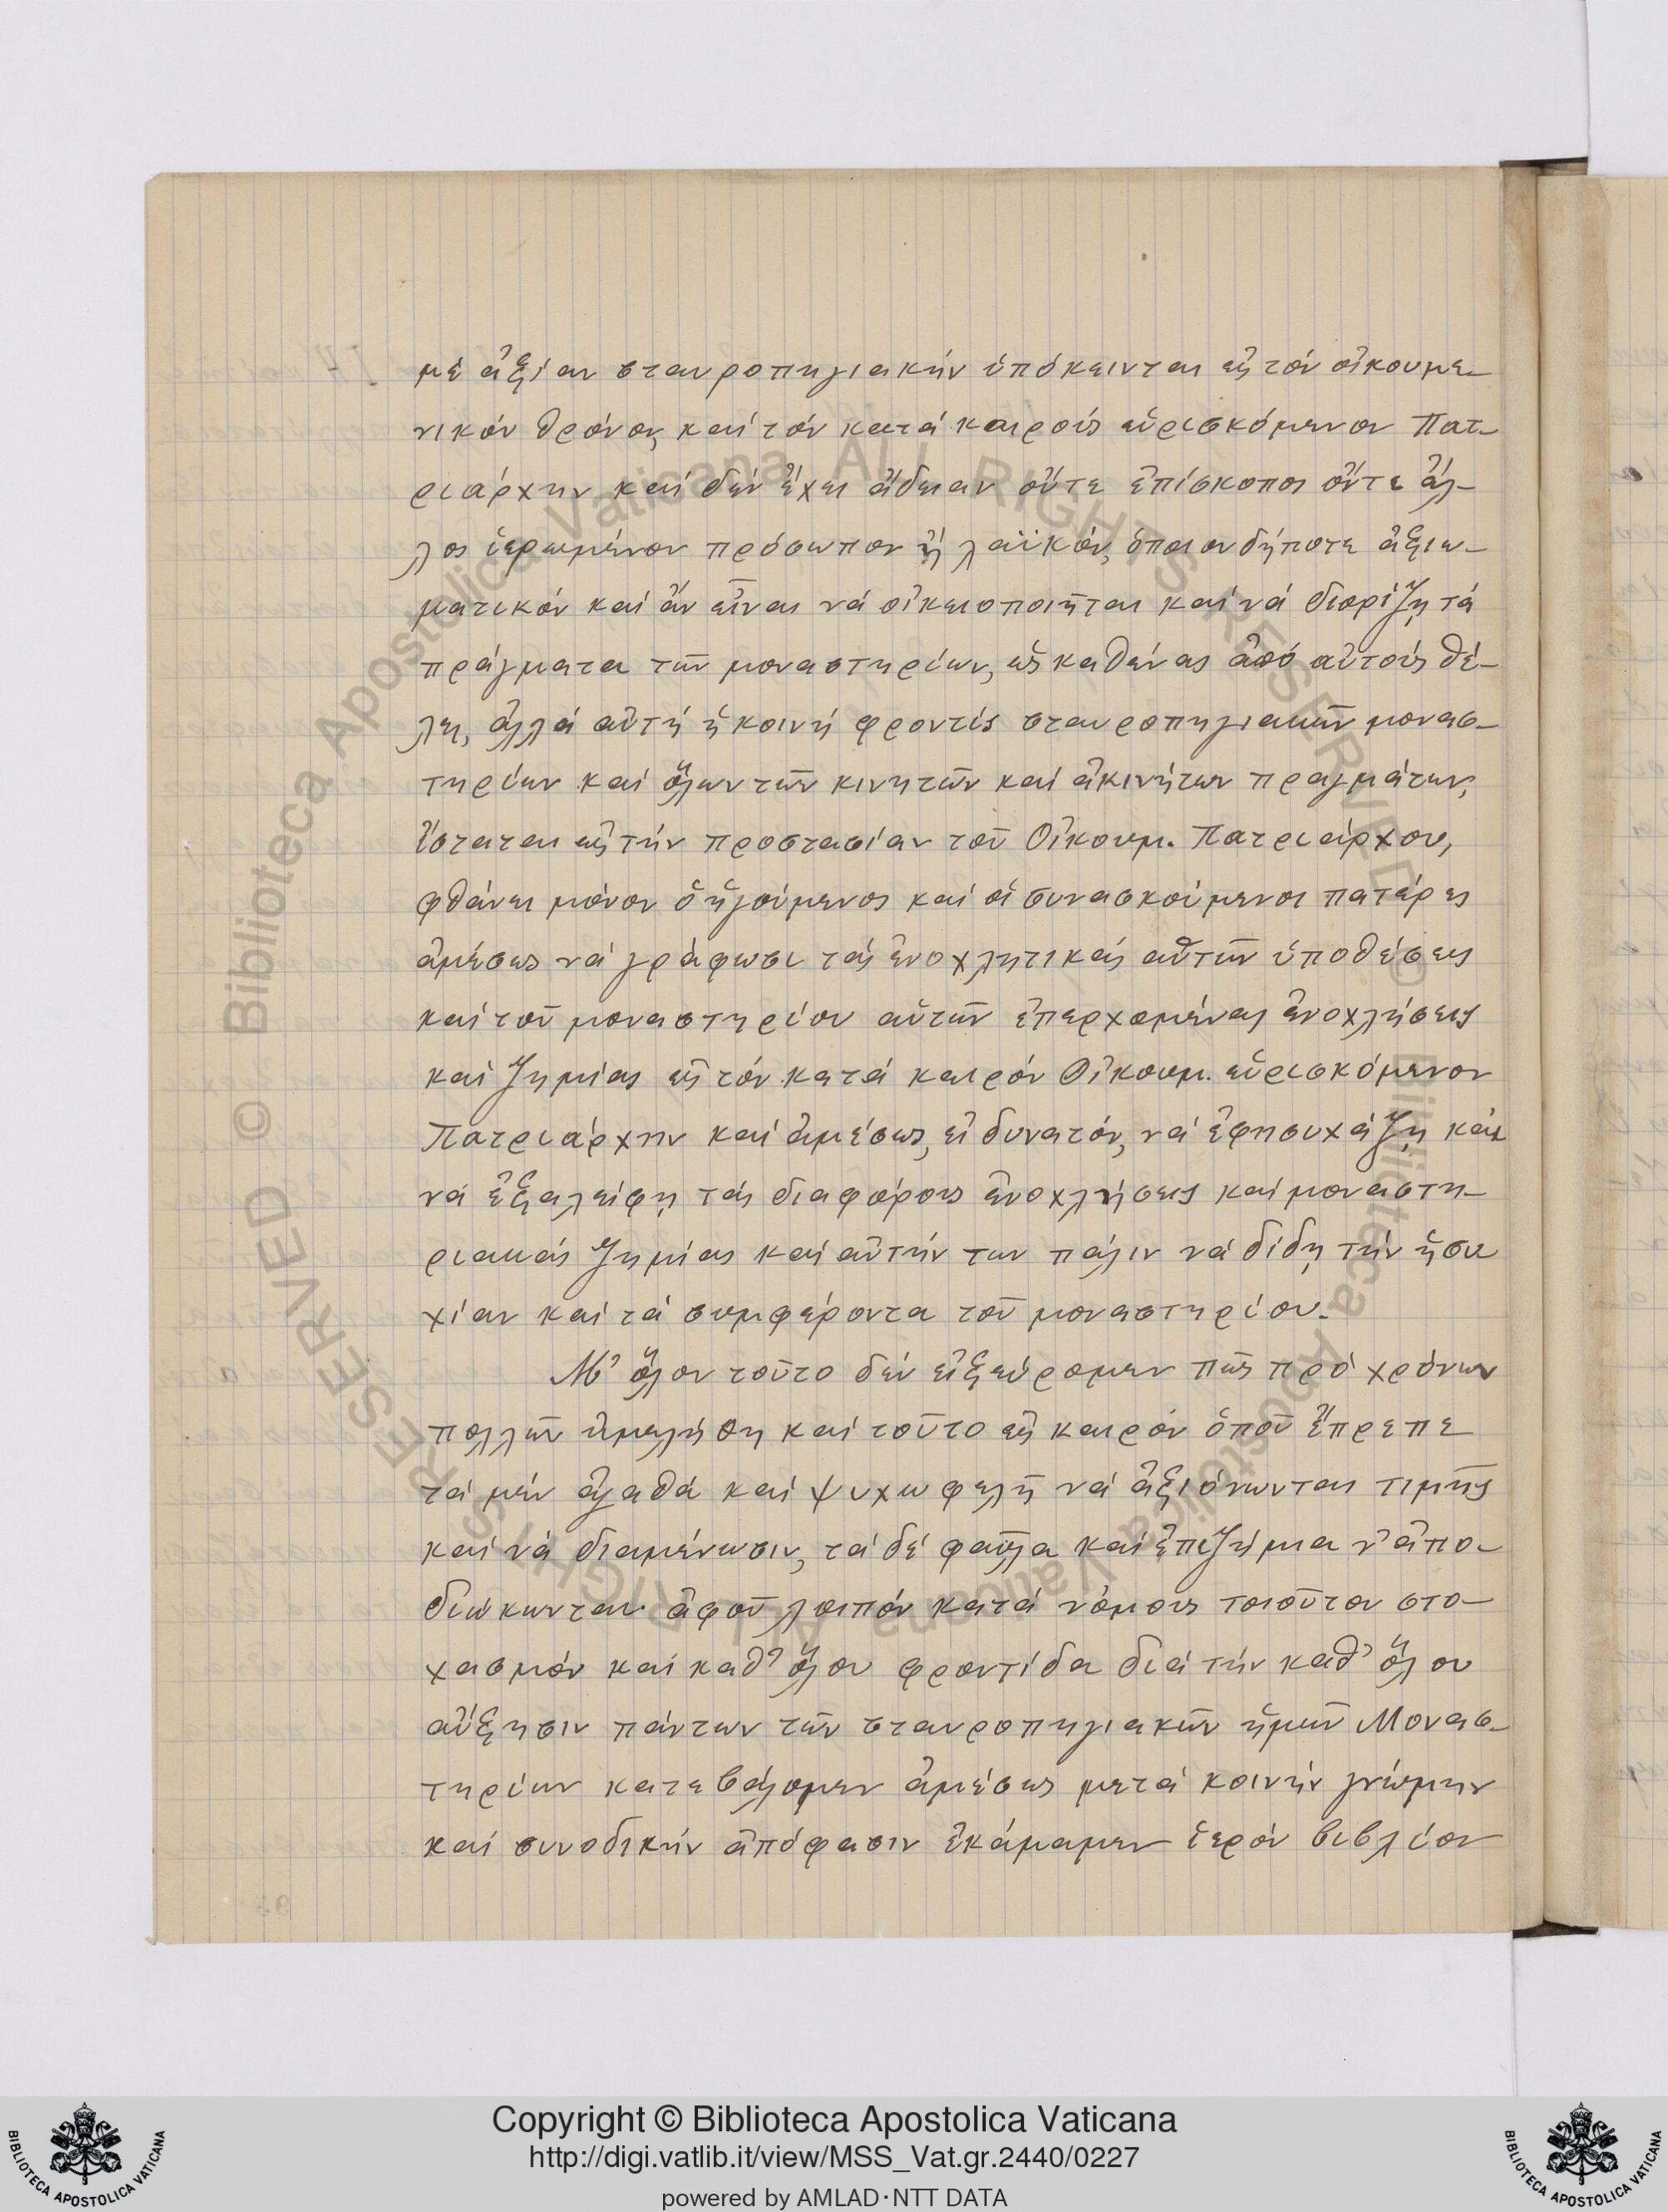 μέ ἀξίαν σταυροπηγιακήν ὑπόκεινται εἰς τόν οἰκουμε-
νικόν θρόνον, καί τόν κατά καιρούς εὑρισκόμενον Πατ-
ριάρχην καί δέν ἔχει ἄδειαν οὔτε ἐπίσκοπος οὔτε ἄλ-
λος ἱερωμένον πρόσωπον ἤ λαϊκόν, ὁποιονδήποτε ἀξιω-
ματικόν καί ἄν εἶναι νά οἰκειοποιῆται καί νά διορίζῃ τά
πράγματα τῶν μοναστηρίων, ὡς καθένας ἀπό αὐτούς θέ-
λει, ἀλλά αὐτή ἡ κοινή φροντίς σταυροπηγιακῶν μονασ-
τηρίων καί ὅλων τῶν κινητῶν καί ἀκινήτων πραγμάτων,
ἵσταται εἰς τήν προστασίαν τοῦ Οἰκουμ. Πατριάρχου,
φθάνει μόνον ὁ ἡγούμενος καί οἱ συνασκούμενοι πατέρες
ἀμέσως νά γράφωσι τάς ἐνοχλητικάς αὐτῶν ὑποθέσεις
καί τοῦ μοναστηρίου αὐτῶν ἐπερχομένας ἐνοχλήσεις
καί ζημίας εἰς τόν κατά καιρόν Οἰκουμ. εὑρισκόμενον
Πατριάρχην καί ἀμέσως, εἰ δυνατόν, νά ἐφησυχάζῃ καί
νά ἐξαλείφῃ τάς διαφόρους ἐνοχλήσεις καί μοναστη-
ριακάς ζημίας καί αὐτήν των πάλιν νά δίδῃ τήν ἡσυ
χίαν καί τά συμφέροντα τοῦ μοναστηρίου.
Μ' ὅλον τοῦτο δέν εἰξεύρομεν πῶς πρό χρόνων
πολλῶν ἠμελήθη καί τοῦτο εἰς καιρόν ὁποῦ ἔπρεπε
τά μέν ἀγαθά καί ψυχωφελῆ νά ἀξιόνωνται τιμῆς
καί νά διαμένωσιν, τά δέ φαῦλα καί ἐπιζήμια ν' ἀπο-
διώκωνται· ἀφοῦ λοιπόν κατά νόμους τοιοῦτον στο-
χασμόν καί καθ' ὅλου φροντίδα διά τήν καθ' ὅλου
αὔξησιν πάντων τῶν σταυροπηγιακῶν ἡμῶν Μονασ-
τηρίων κατεβάλομεν ἀμέσως μετά κοινήν γνώμην
καί συνοδικήν ἀπόφασιν ἐκάμαμεν ἱερόν βιβλίον
Copyright © Biblioteca Apostolica Vaticana
http://digi.vatlib.it/view/MSS_Vat.gr.2440/0227
powered by AMLAD·NTT DATA